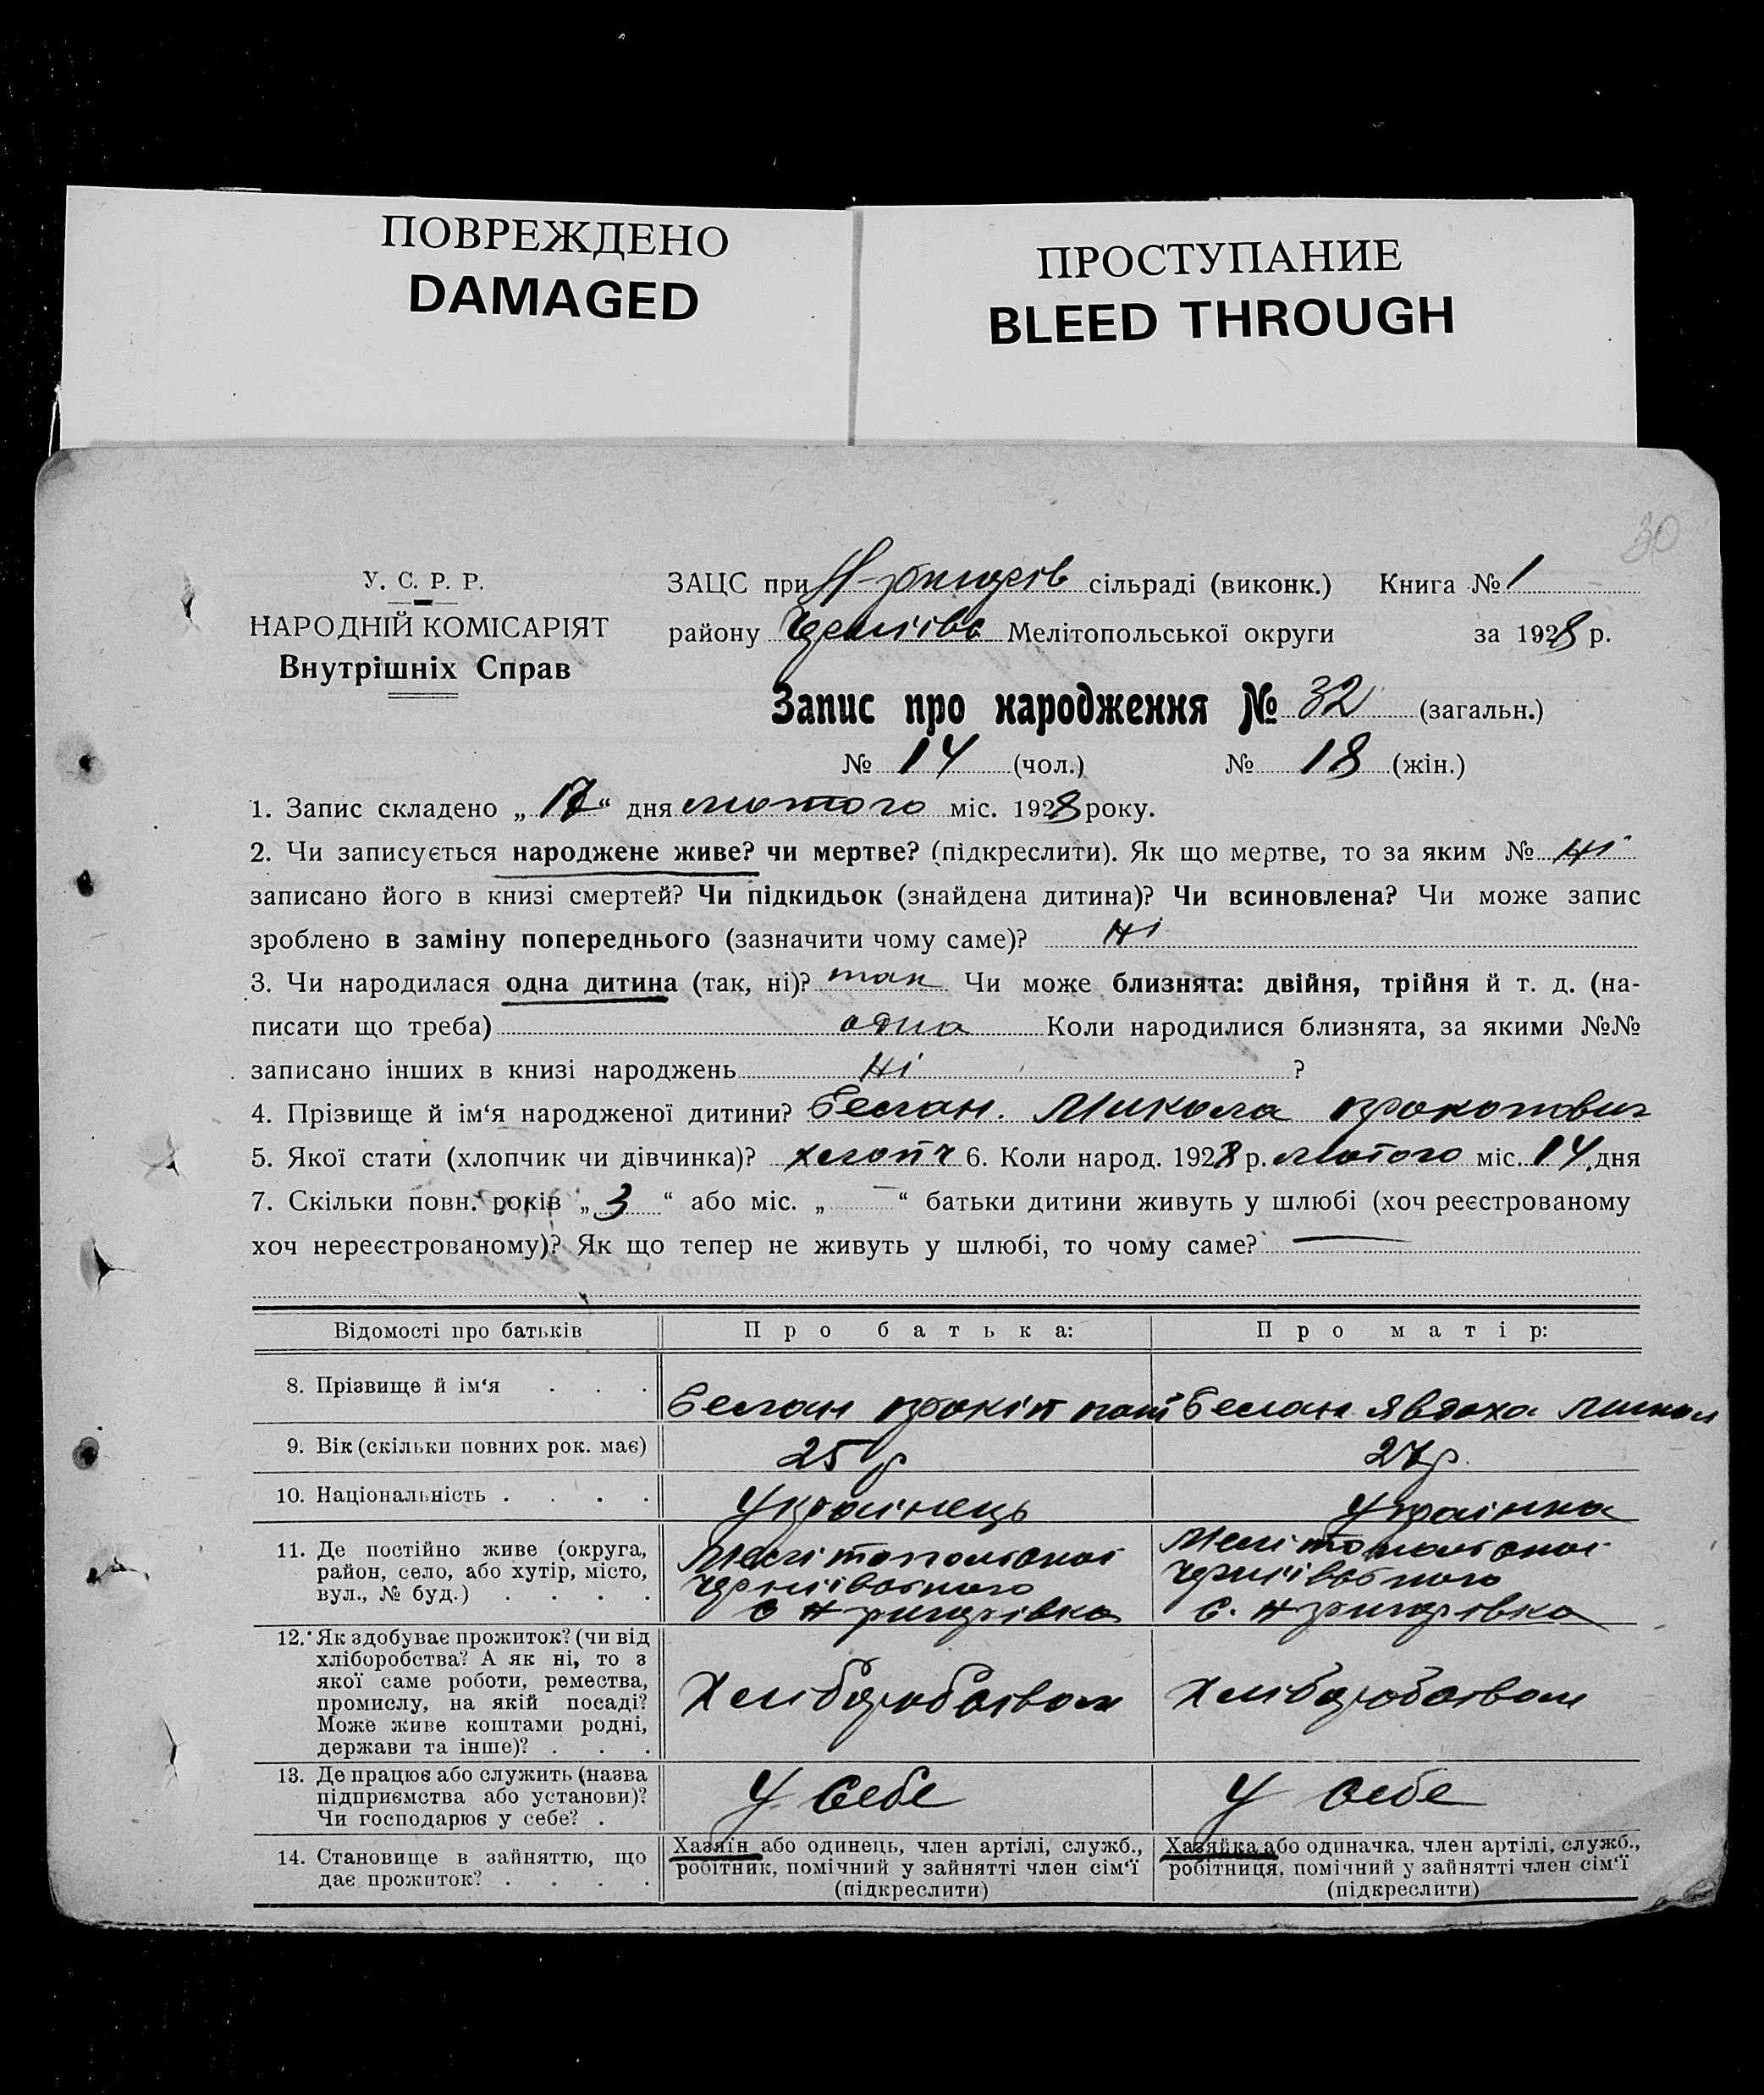 ПОВРЕЖДЕНО
DAMAGED
ПРОСТУПАНИЕ
BLEED THROUGH
30
У. С. Р. Р.
НАРОДНІЙ КОМІСАРІЯТ
Внутрішніх Справ
ЗАЦС при сільраді (виконк.) Книга № 1
району Мелітопольської округи за 1928 р.
Запис про народження № 32 (загальн.)
№ 14 (чол.) № 18 (жін.)
1. Запис складено „ 17 “ дня лютого міс. 1928 року.
2. Чи записується народжене живе? чи мертве? (підкреслити). Як що мертве, то за яким № ні
записано його в книзі смертей? Чи підкидьок (знайдена дитина)? Чи всиновлена? Чи може запис
зроблено в заміну попереднього (зазначити чому саме)? ні
3. Чи народилася одна дитина (так, ні)? так Чи може близнята: двійня, трійня й т. д. (на-
писати що треба) одна Коли народилися близнята, за якими №№
записано інших в книзі народжень ні ?
4. Прізвище й ім‘я народженої дитини? Белан. Микола Прокопович
5. Якої стати (хлопчик чи дівчинка)? хлопч 6. Коли народ. 1928 р. лютого міс. 14 дня
7. Скільки повн. років „ 3 “ або міс. „ — “ батьки дитини живуть у шлюбі (хоч реєстрованому
хоч нереєстрованому)? Як що тепер не живуть у шлюбі, то чому саме? —
Відомості про батьків Про батька: Про матір:
8. Прізвище й ім‘я . . . Белан Прокіп Белан Явдоха
9. Вік (скільки повних рок. має) 25 р 27 р.
10. Національність . . . . Українець Українка
11. Де постійно живе (округа,
район, село, або хутір, місто,
вул., № буд.) . . . .
Мелітопольскої
с Н григорівка
Мелітопольскої
с. Н григорівка
12. Як здобуває прожиток? (чи від
хліборобства? А як ні, то з
якої саме роботи, ремества,
промислу, на якій посаді?
Може живе коштами родні,
держави та інше)? . . .
Хлиборобством
Хлиборобством
13. Де працює або служить (назва
підприємства або установи)?
Чи господарює у себе? .
У себе
У себе
14. Становище в зайняттю, що
дає прожиток? . . . .
Хазяїн або одинець, член артілі, служб.,
робітник, помічний у зайнятті член сім‘ї
(підкреслити)
Хазяйка або одиначка, член артілі, служб.,
робітниця, помічний у зайнятті член сім‘ї
(підкреслити)